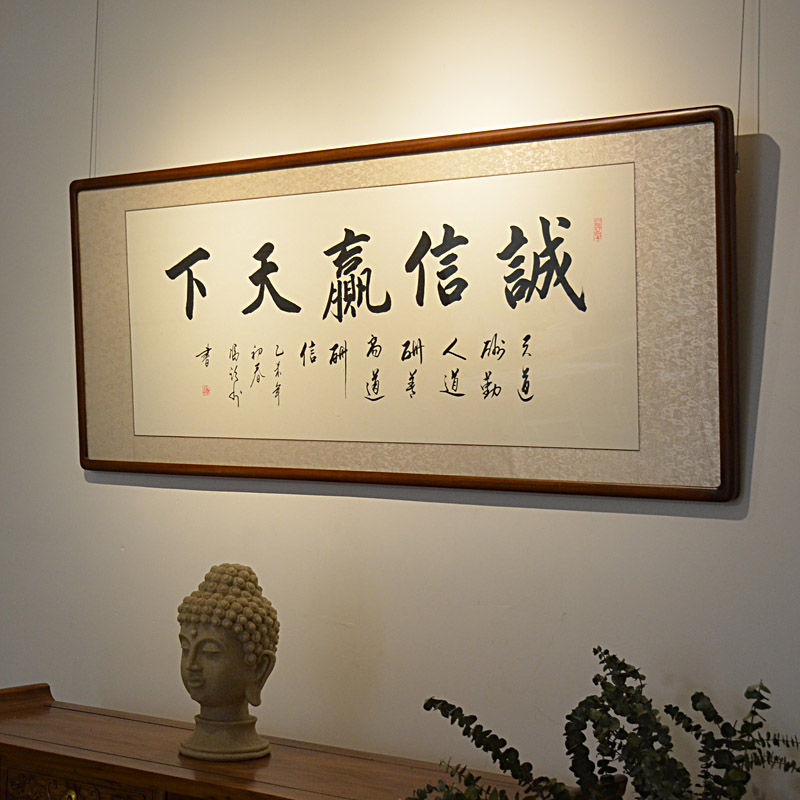 誠信贏天下
天道
酬勤
人道
酬善
商道
酬
信
乙未年
初春
書